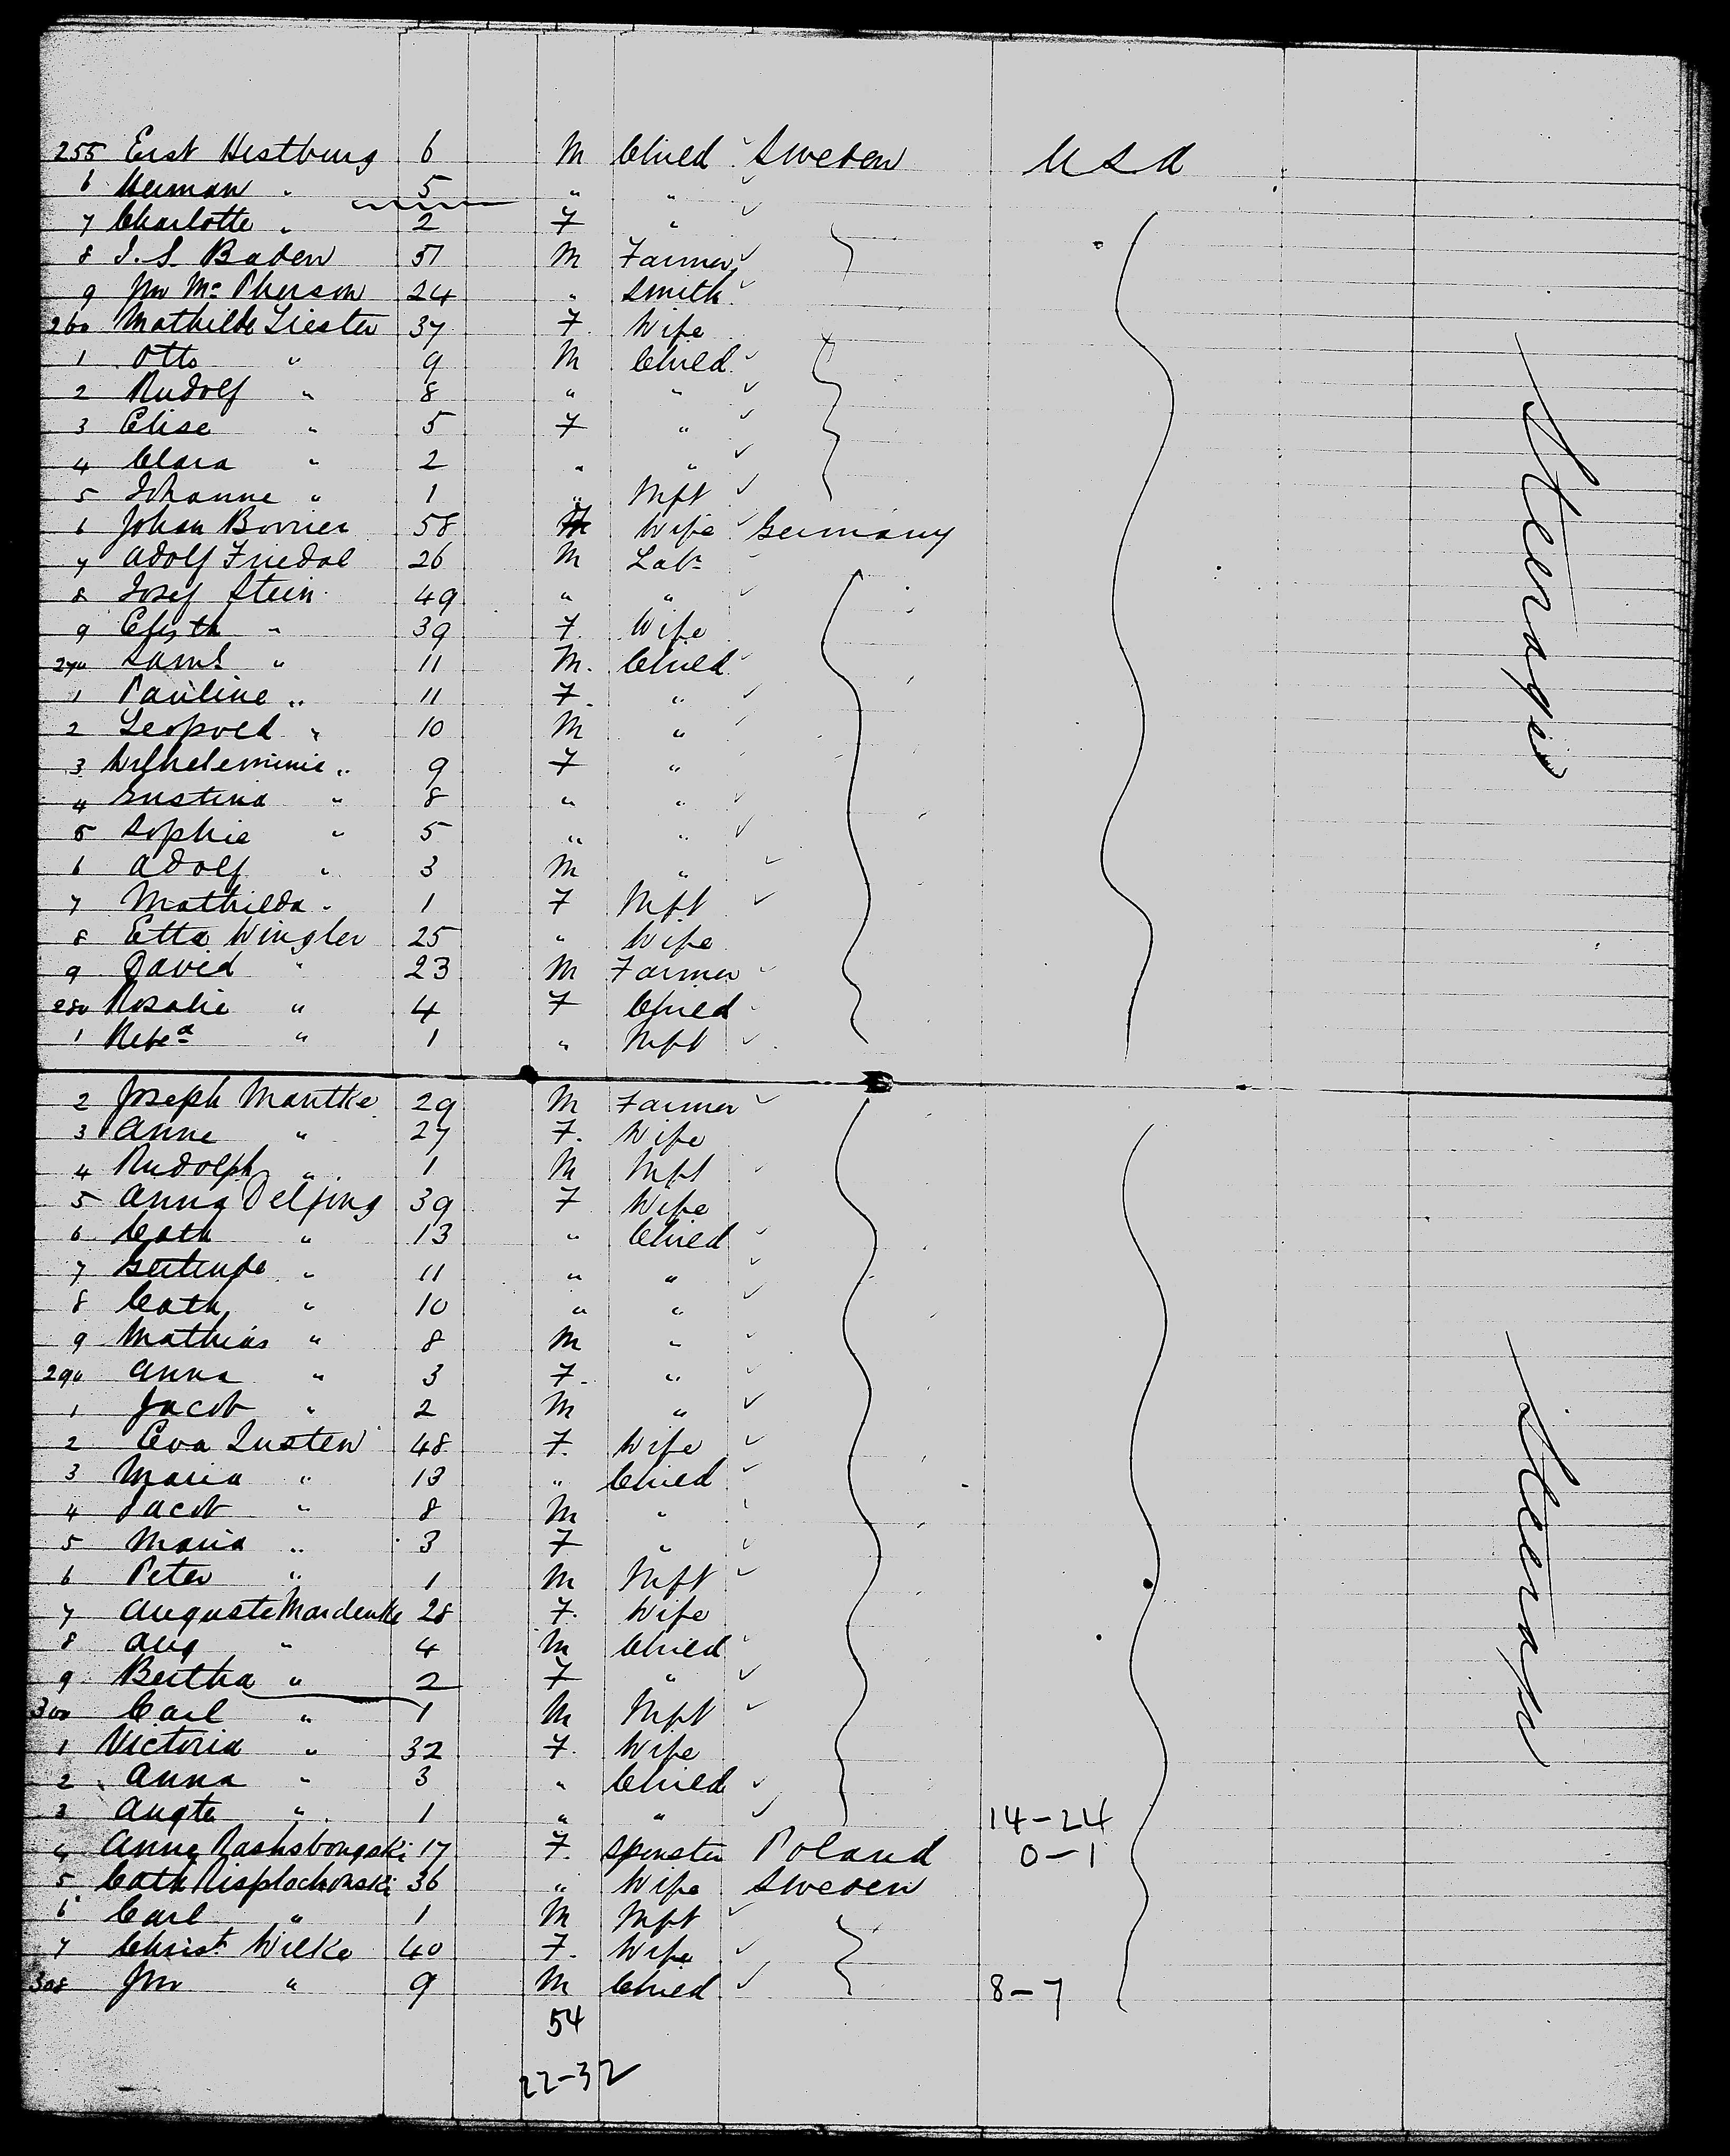 255 Erst Hestburg 6 M Child Sweden USA
6 Herman " 5 " "
7 Charlotte " 2 F "
8 J. S. Baden 51 M Farmer
9 Jno Mc Pherson 24 " Smith
260 Mathilde Liester 37 F Wife
1 Otto " 9 M Child
2 Rudolf " 8 " "
3 Elise " 5 F "
4 Clara " 2 " "
5 Johanne " 1 " Inft
6 Johan Borrier 58 F Wife Germany
7 Adolf Friedal 26 M Labr
8 Josef Stein 49 " "
9 " 39 F Wife
270 Saml " 11 M Child
1 Pauline " 11 F "
2 Leopold " 10 M "
3 Wilhelemine " 9 F "
4 Gustina " 8 " "
5 Sophie " 5 " "
6 Adolf " 3 M "
7 Mathilda " 1 F Inft
8 Etta Wingler 25 " Wife
9 David " 23 M Farmer
280 Rosalie " 4 F Child
1 Rebea " 1 " Inft
Steerage
2 Joseph Mantke 29 M Farmer
3 Anne " 27 F Wife
4 Rudolph " 1 M Inft
5 Anna Delfing 39 F Wife
6 Cath " 13 " Child
7 Gertrude " 11 " "
8 Cath " 10 " "
9 Mathias " 8 M "
290 Anna " 3 F "
1 Jacob " 2 M "
2 Eva Justen 48 F Wife
3 Maria " 13 " Child
4 Jacob " 8 M "
5 Maria " 3 F "
6 Peter " 1 M Inft
7 Auguste Mardenke 28 F Wife
8 Aug " 4 M Child
9 Bertha " 2 F "
300 Carl " 1 M Inft
1 Victoria " 32 F Wife
2 Anna " 3 " Child
3 Augte " 1 " " 14-24
4 Anna Rashsbongski 17 F Spinster Poland 0-1
5 Cath Risplochonski 36 " Wife Sweden
6 Carl " 1 M Inft
7 Christ Wilke 40 F Wife
308 Jno " 9 M Child 8-7
Steerage
54
22-32